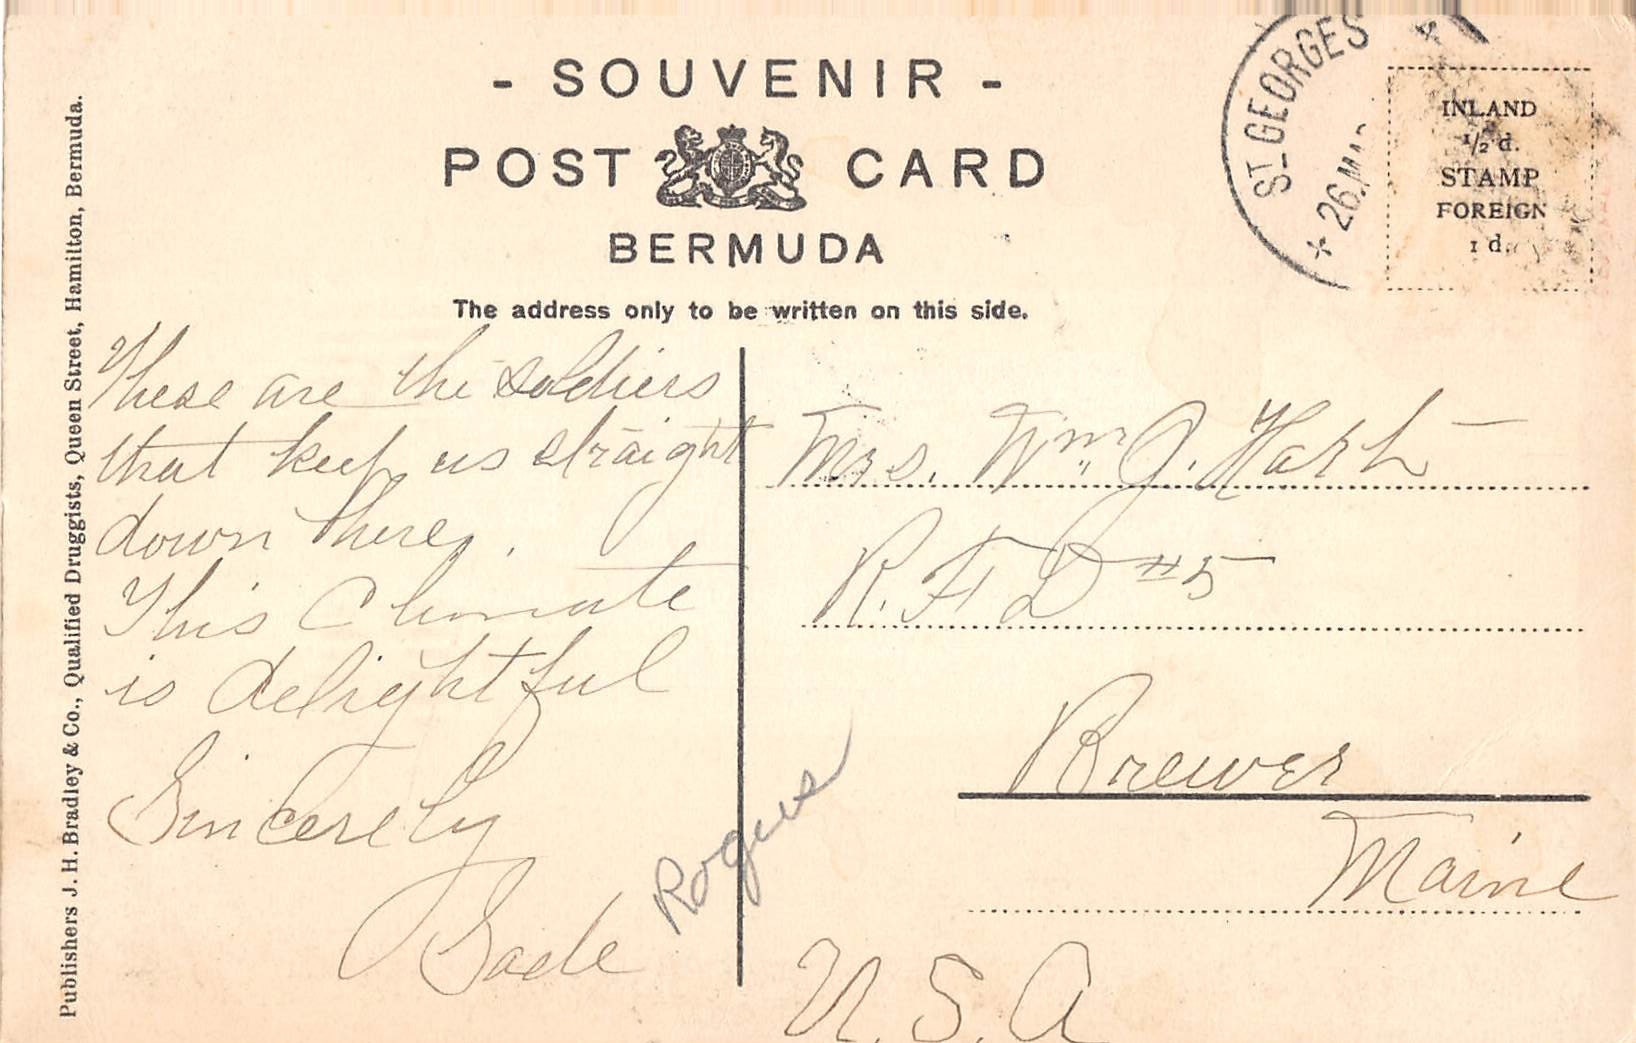 - SOUVENIR -
POST CARD
BERMUDA
The address only to be written on this side.
ST GEORGES
26
INLAND
1/2 d.
STAMP
FOREIGN
1 d.
Publishers J. H. Bradley & Co., Qualified Druggists, Queen Street, Hamilton, Bermuda.
These are the soldiers
that keep us straight
down here.
This Climate
is delightful
Sincerely
Sade
Rogers
Mrs. Wm. J. Hart
R. F. D #5
Brewer
Maine
U.S.A